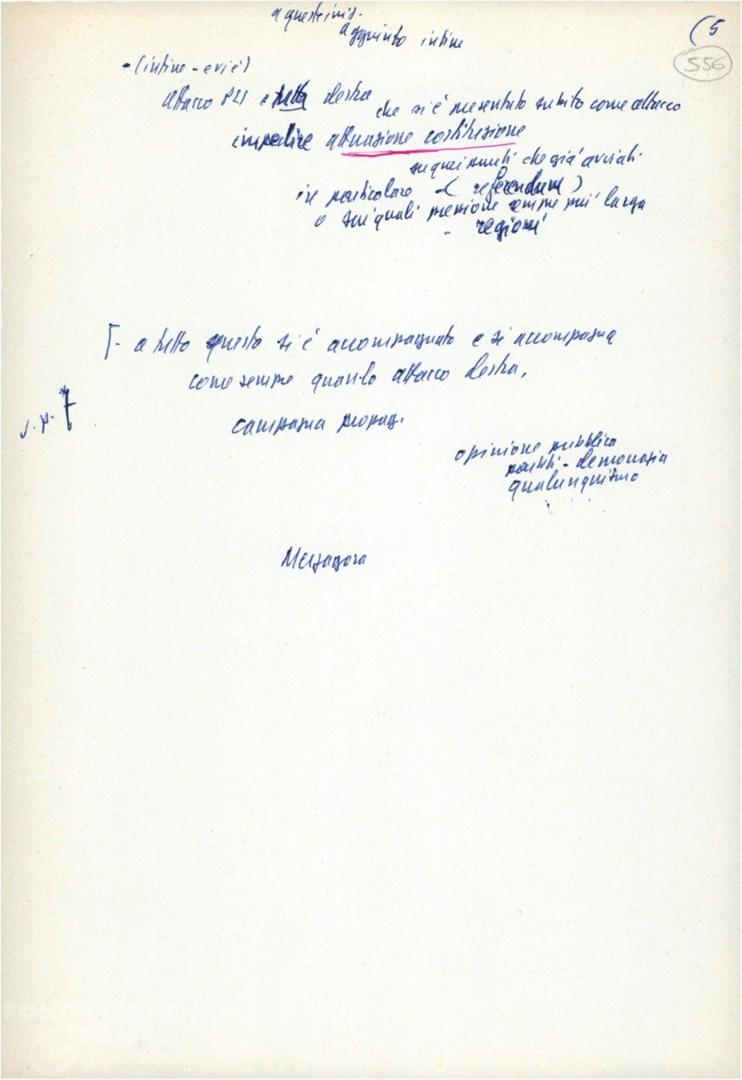 a queste iniz.
aggiunto infine
(5
556
- (infine - ed è)
attacco PLI e tutta destra che si è presentato subito come attacco
impedire attuazione costituzione
su quei punti che già avviati.
in particolare - ( referendum )
o sui quali pressione sempre più larga
- regioni
[- a tutto questo si è accompagnato e si accompagna
come sempre quando attacco destra,
campagna propag.
opinione pubblica
partiti - democrazia
qualunquismo
7
Merzagora